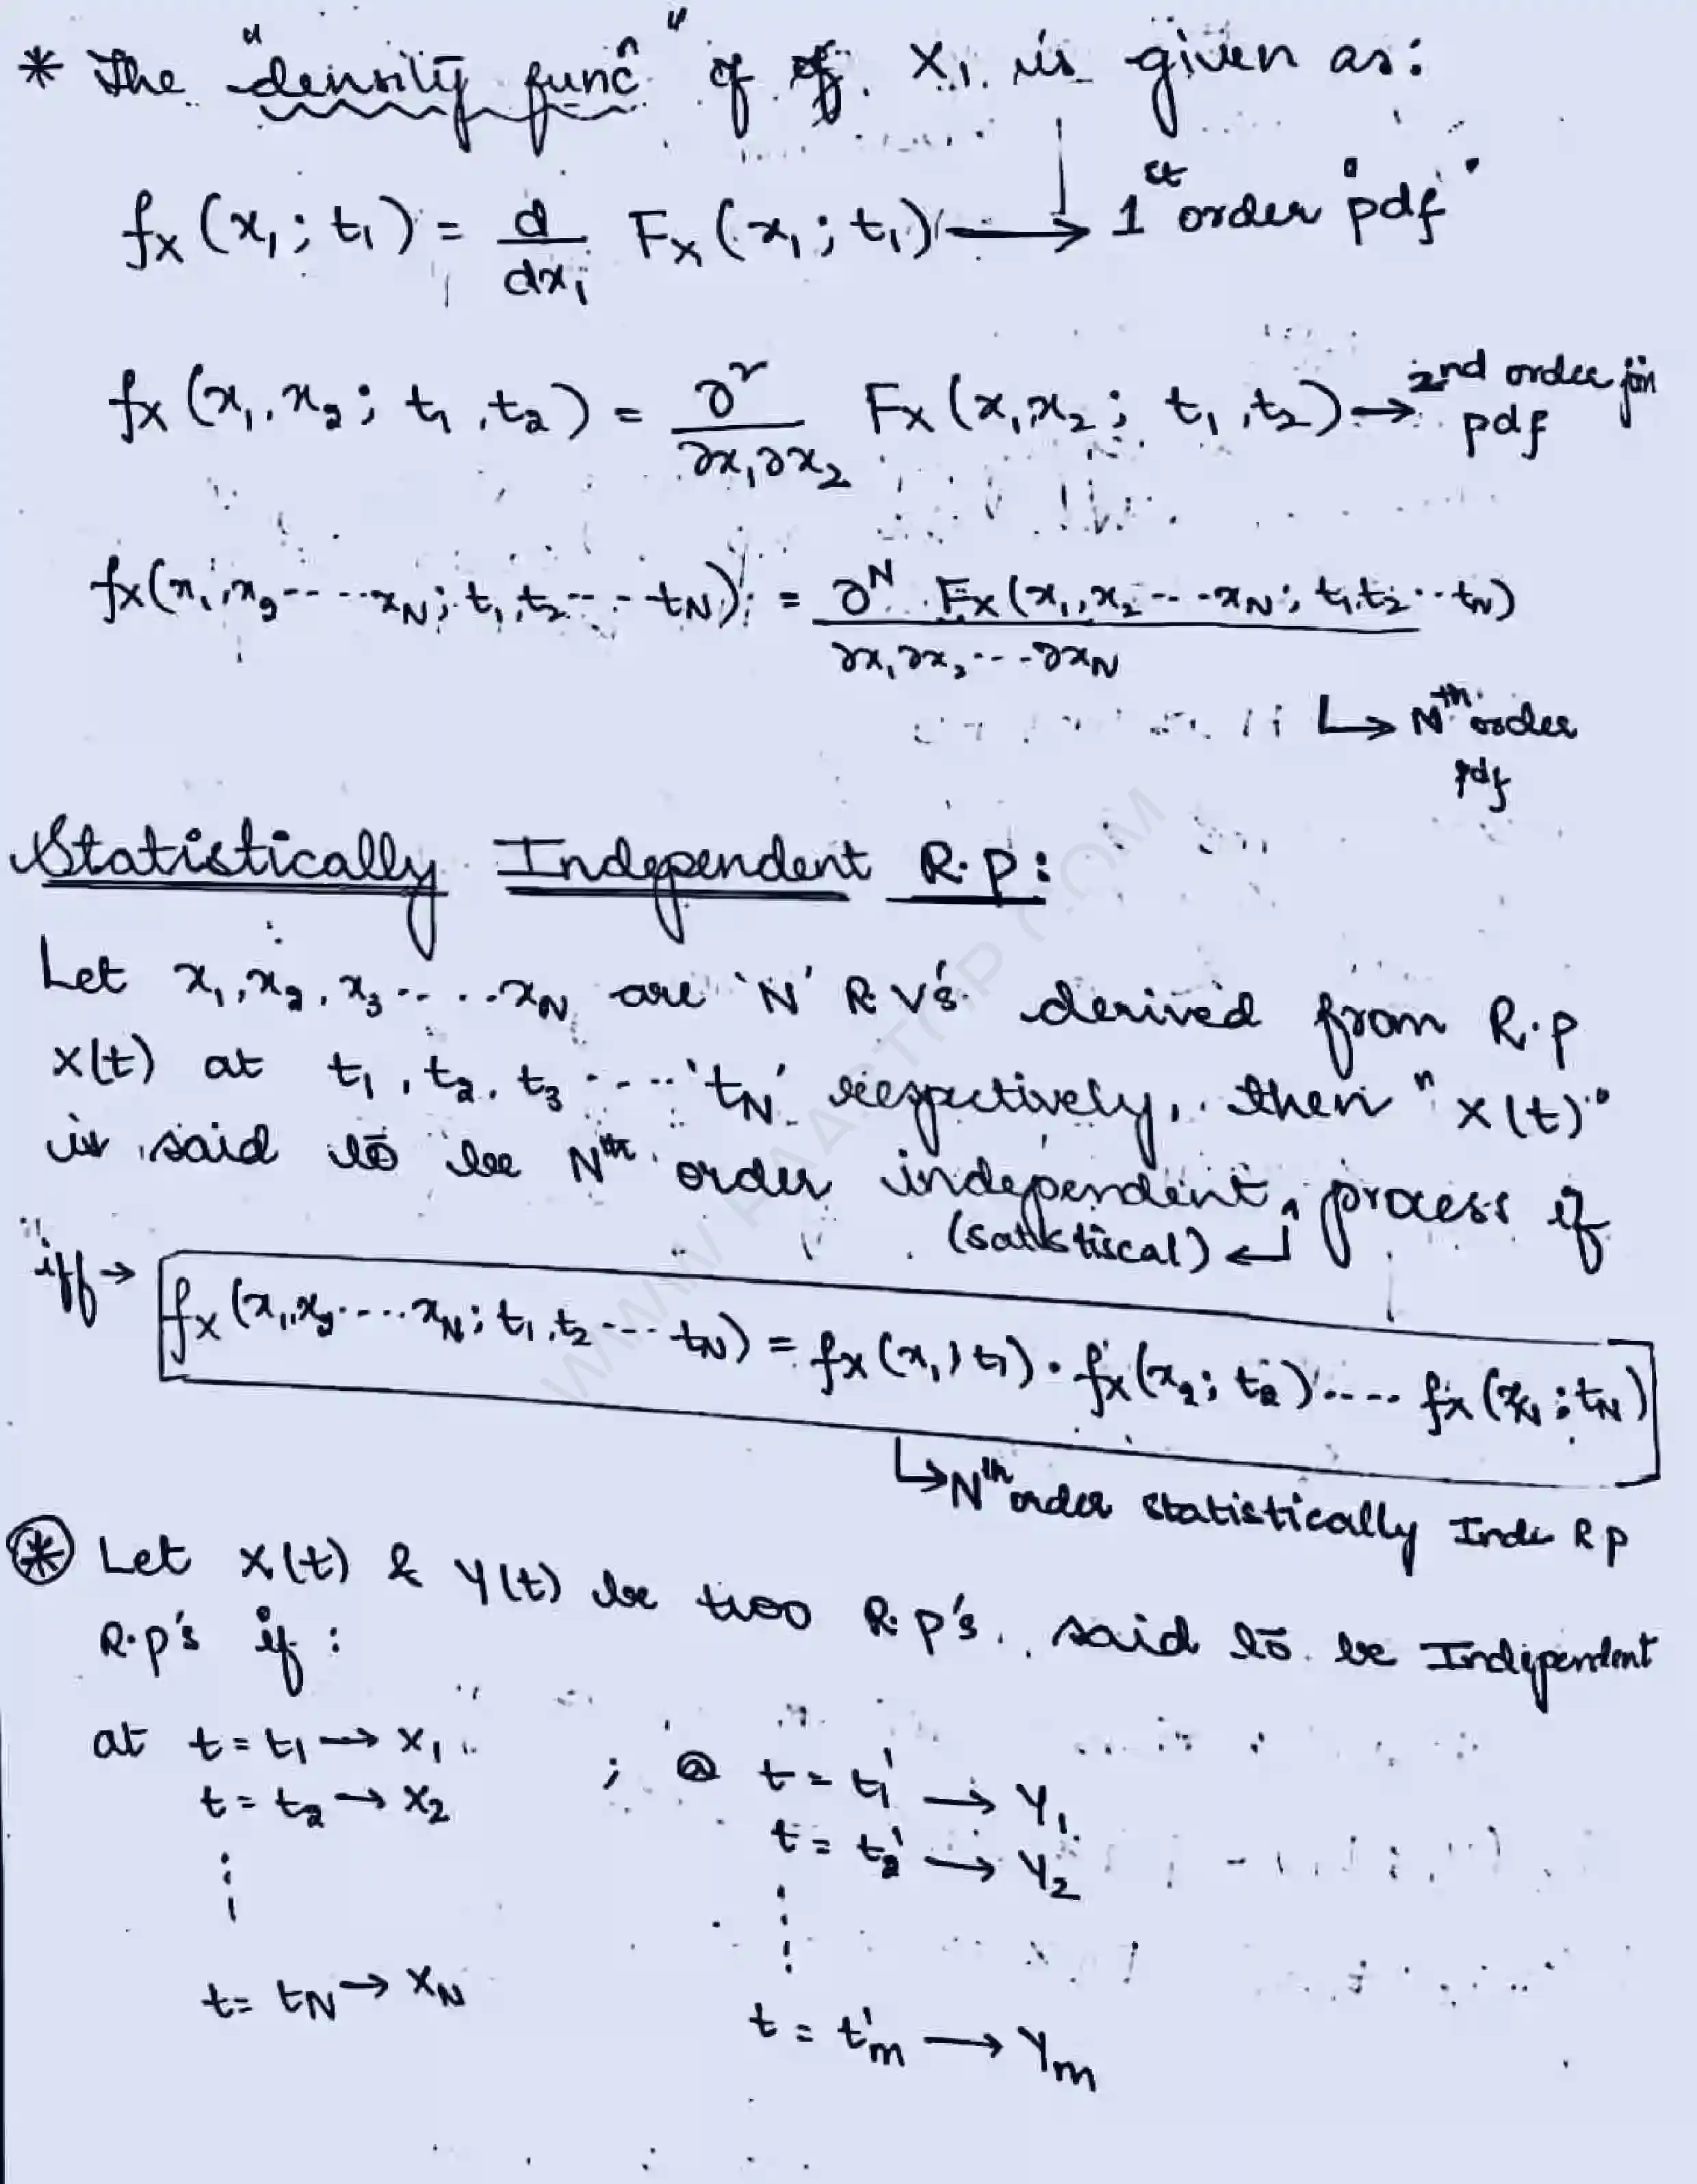 * The "density funcⁿ" of of X₁ is given as:
fx(x₁; t₁) = d/dx₁ Fx(x₁; t₁) → 1st order "pdf"
fx(x₁,x₂; t₁,t₂) = ∂²/∂x₁∂x₂ Fx(x₁x₂; t₁,t₂) → 2nd order join
pdf
fx(x₁,x₂-----xN; t₁,t₂----tN) = ∂ᴺ Fx(x₁,x₂---xN; t₁,t₂..tN)/∂x₁∂x₂....∂xN
↳ Nth order
pdf
Statistically Independent R.P:
Let x₁,x₂,x₃.....xN are 'N' R.V's derived from R.p
X(t) at t₁,t₂,t₃.....'tN' respectively, then "X(t)"
is said to be Nth order independent process if
(satistiscal) ↵
iff → fx(x₁,x₂....xN; t₁,t₂...tN) = fx(x₁;t₁).fx(x₂; t₂)..... fx(xN;tN)
↳ Nth order statistically Inde RP
* Let X(t) & Y(t) be two R.P's, said to be Independent
R.P's if:
at t = t₁ → X₁ ; @ t = t₁' → Y₁
t = t₂ → X₂ t = t₂' → Y₂
t = tN → XN t = t'm → Ym
WWW.
.COM